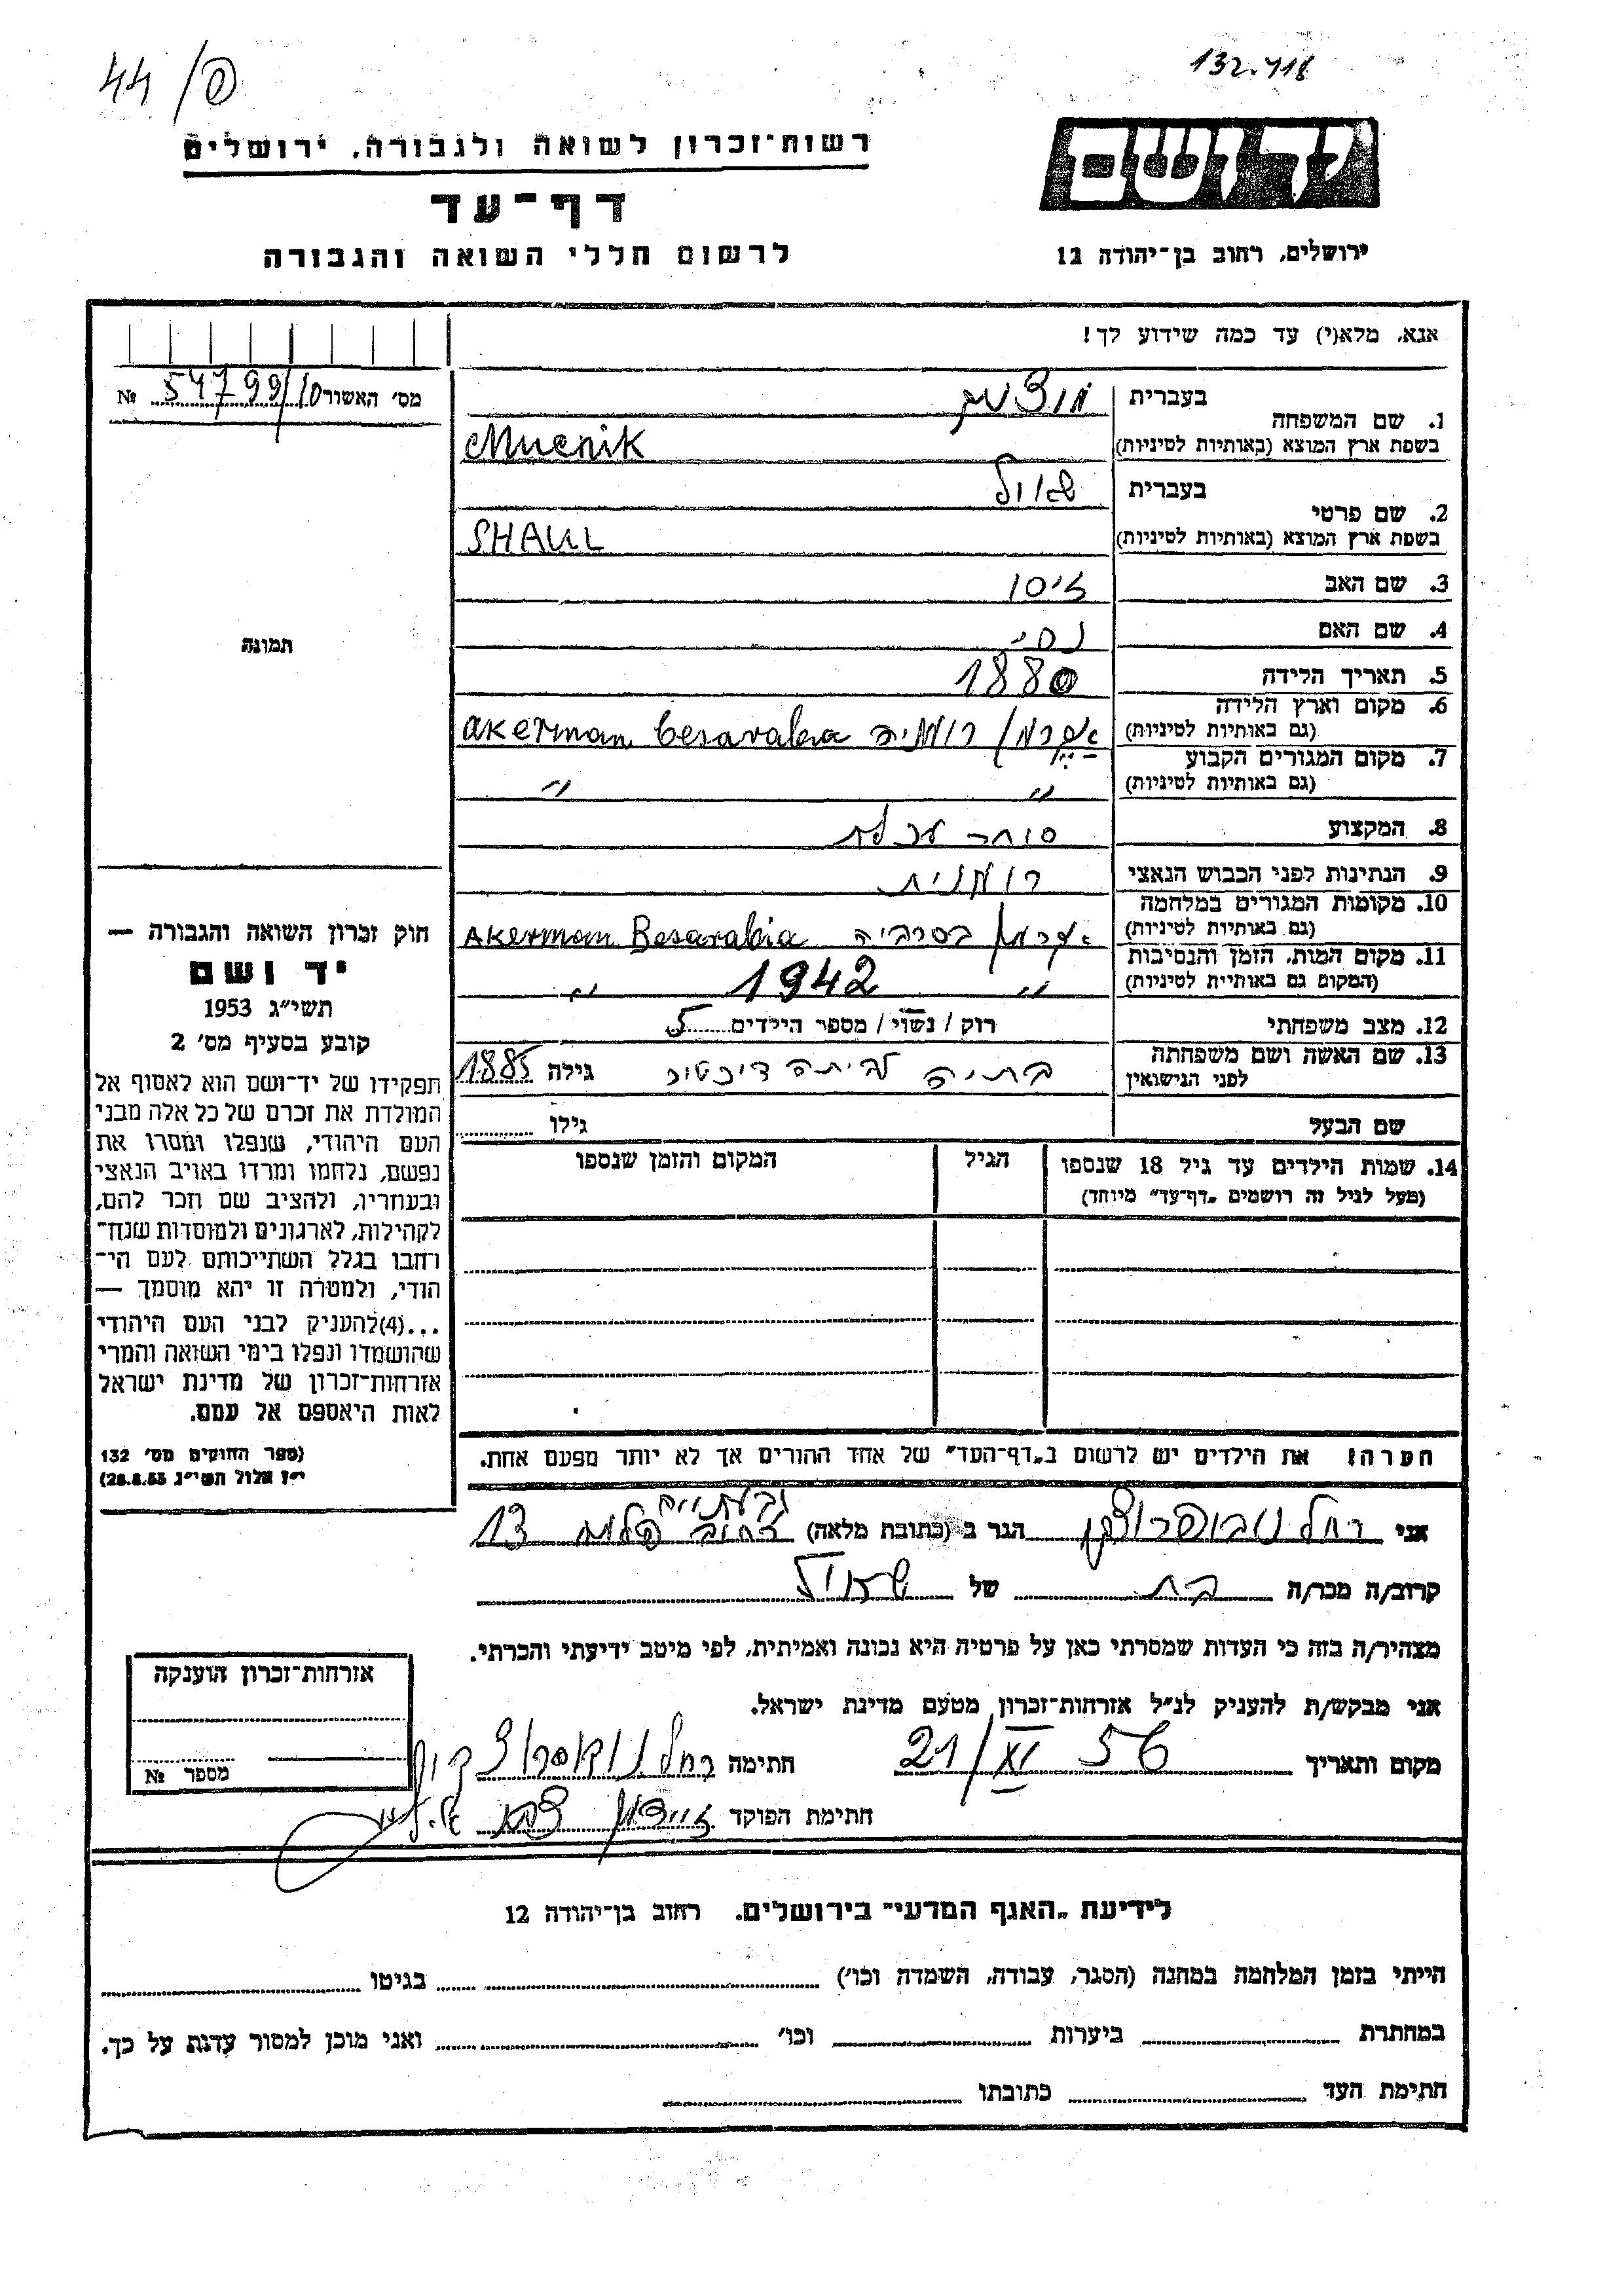 44/פ
132.418
רשות־זכרון לשואה ולגבורה, ירושלים
יד ושם
דף־עד
לרשום חללי השואה והגבורה
ירושלים, רחוב בן־יהודה 12
אנא, מלא(י) עד כמה שידוע לך!
מס' האשור 54799/10 №
1. שם המשפחה
בעברית
בשפת ארץ המוצא (באותיות לטיניות) Mucnik
2. שם פרטי
בעברית שאול
בשפת ארץ המוצא (באותיות לטיניות) SHAUL
3. שם האב זיסו
4. שם האם נסי
5. תאריך הלידה 1880
6. מקום וארץ הלידה
(גם באותיות לטיניות) אקרמן רומניה Akerman besarabia
7. מקום המגורים הקבוע
(גם באותיות לטיניות) " "
8. המקצוע סוחר
9. הנתינות לפני הכבוש הנאצי רומנית
10. מקומות המגורים במלחמה
(גם באותיות לטיניות) אקרמן בסרביה Akerman Besarabia
11. מקום המות, הזמן והנסיבות
(המקום גם באותיית לטיניות) " 1942 "
12. מצב משפחתי רוק / נשוי / מספר הילדים 5
13. שם האשה ושם משפחתה
לפני הנישואין בתיה לבית גילה 1885
שם הבעל גילו
14. שמות הילדים עד גיל 18 שנספו
(מעל לגיל זה רושמים „דף־עד" מיוחד)
הגיל
המקום והזמן שנספו
הערה: את הילדים יש לרשום ב„דף־העד" של אחד ההורים אך לא יותר מפעם אחת.
תמונה
חוק זכרון השואה והגבורה —
יד ושם
תשי"ג 1953
קובע בסעיף מס' 2
תפקידו של יד־ושם הוא לאסוף אל
המולדת את זכרם של כל אלה מבני
העם היהודי, שנפלו ומסרו את
נפשם, נלחמו ומרדו באויב הנאצי
ובעוזריו, ולהציב שם וזכר להם,
לקהילות, לארגונים ולמוסדות שנח־
רבו בגלל השתייכותם לעם הי־
הודי, ולמטרה זו יהא מוסמך —
...(4)להעניק לבני העם היהודי
שהושמדו ונפלו בימי השואה והמרי
אזרחות־זכרון של מדינת ישראל
לאות היאספם אל עמם.
(ספר החוקים מס' 132
י"ז אלול תשי"ג 28.8.53)
אני רחל הגר ב (כתובת מלאה) גבעתיים רחוב 13
קרוב/ה מכר/ה בת של שאול
מצהיר/ה בזה כי העדות שמסרתי כאן על פרטיה היא נכונה ואמיתית, לפי מיטב ידיעתי והכרתי.
אני מבקש/ת להעניק לנ"ל אזרחות־זכרון מטעם מדינת ישראל.
מקום ותאריך 21/XI 56 חתימה רחל
חתימת הפוקד
אזרחות־זכרון הוענקה
מספר №
לידיעת „האגף המדעי" בירושלים, רחוב בן־יהודה 12
הייתי בזמן המלחמה במחנה (הסגר, עבודה, השמדה וכו') בגיטו
במחתרת ביערות וכו' ואני מוכן למסור עדות על כך.
חתימת העד כתובתו